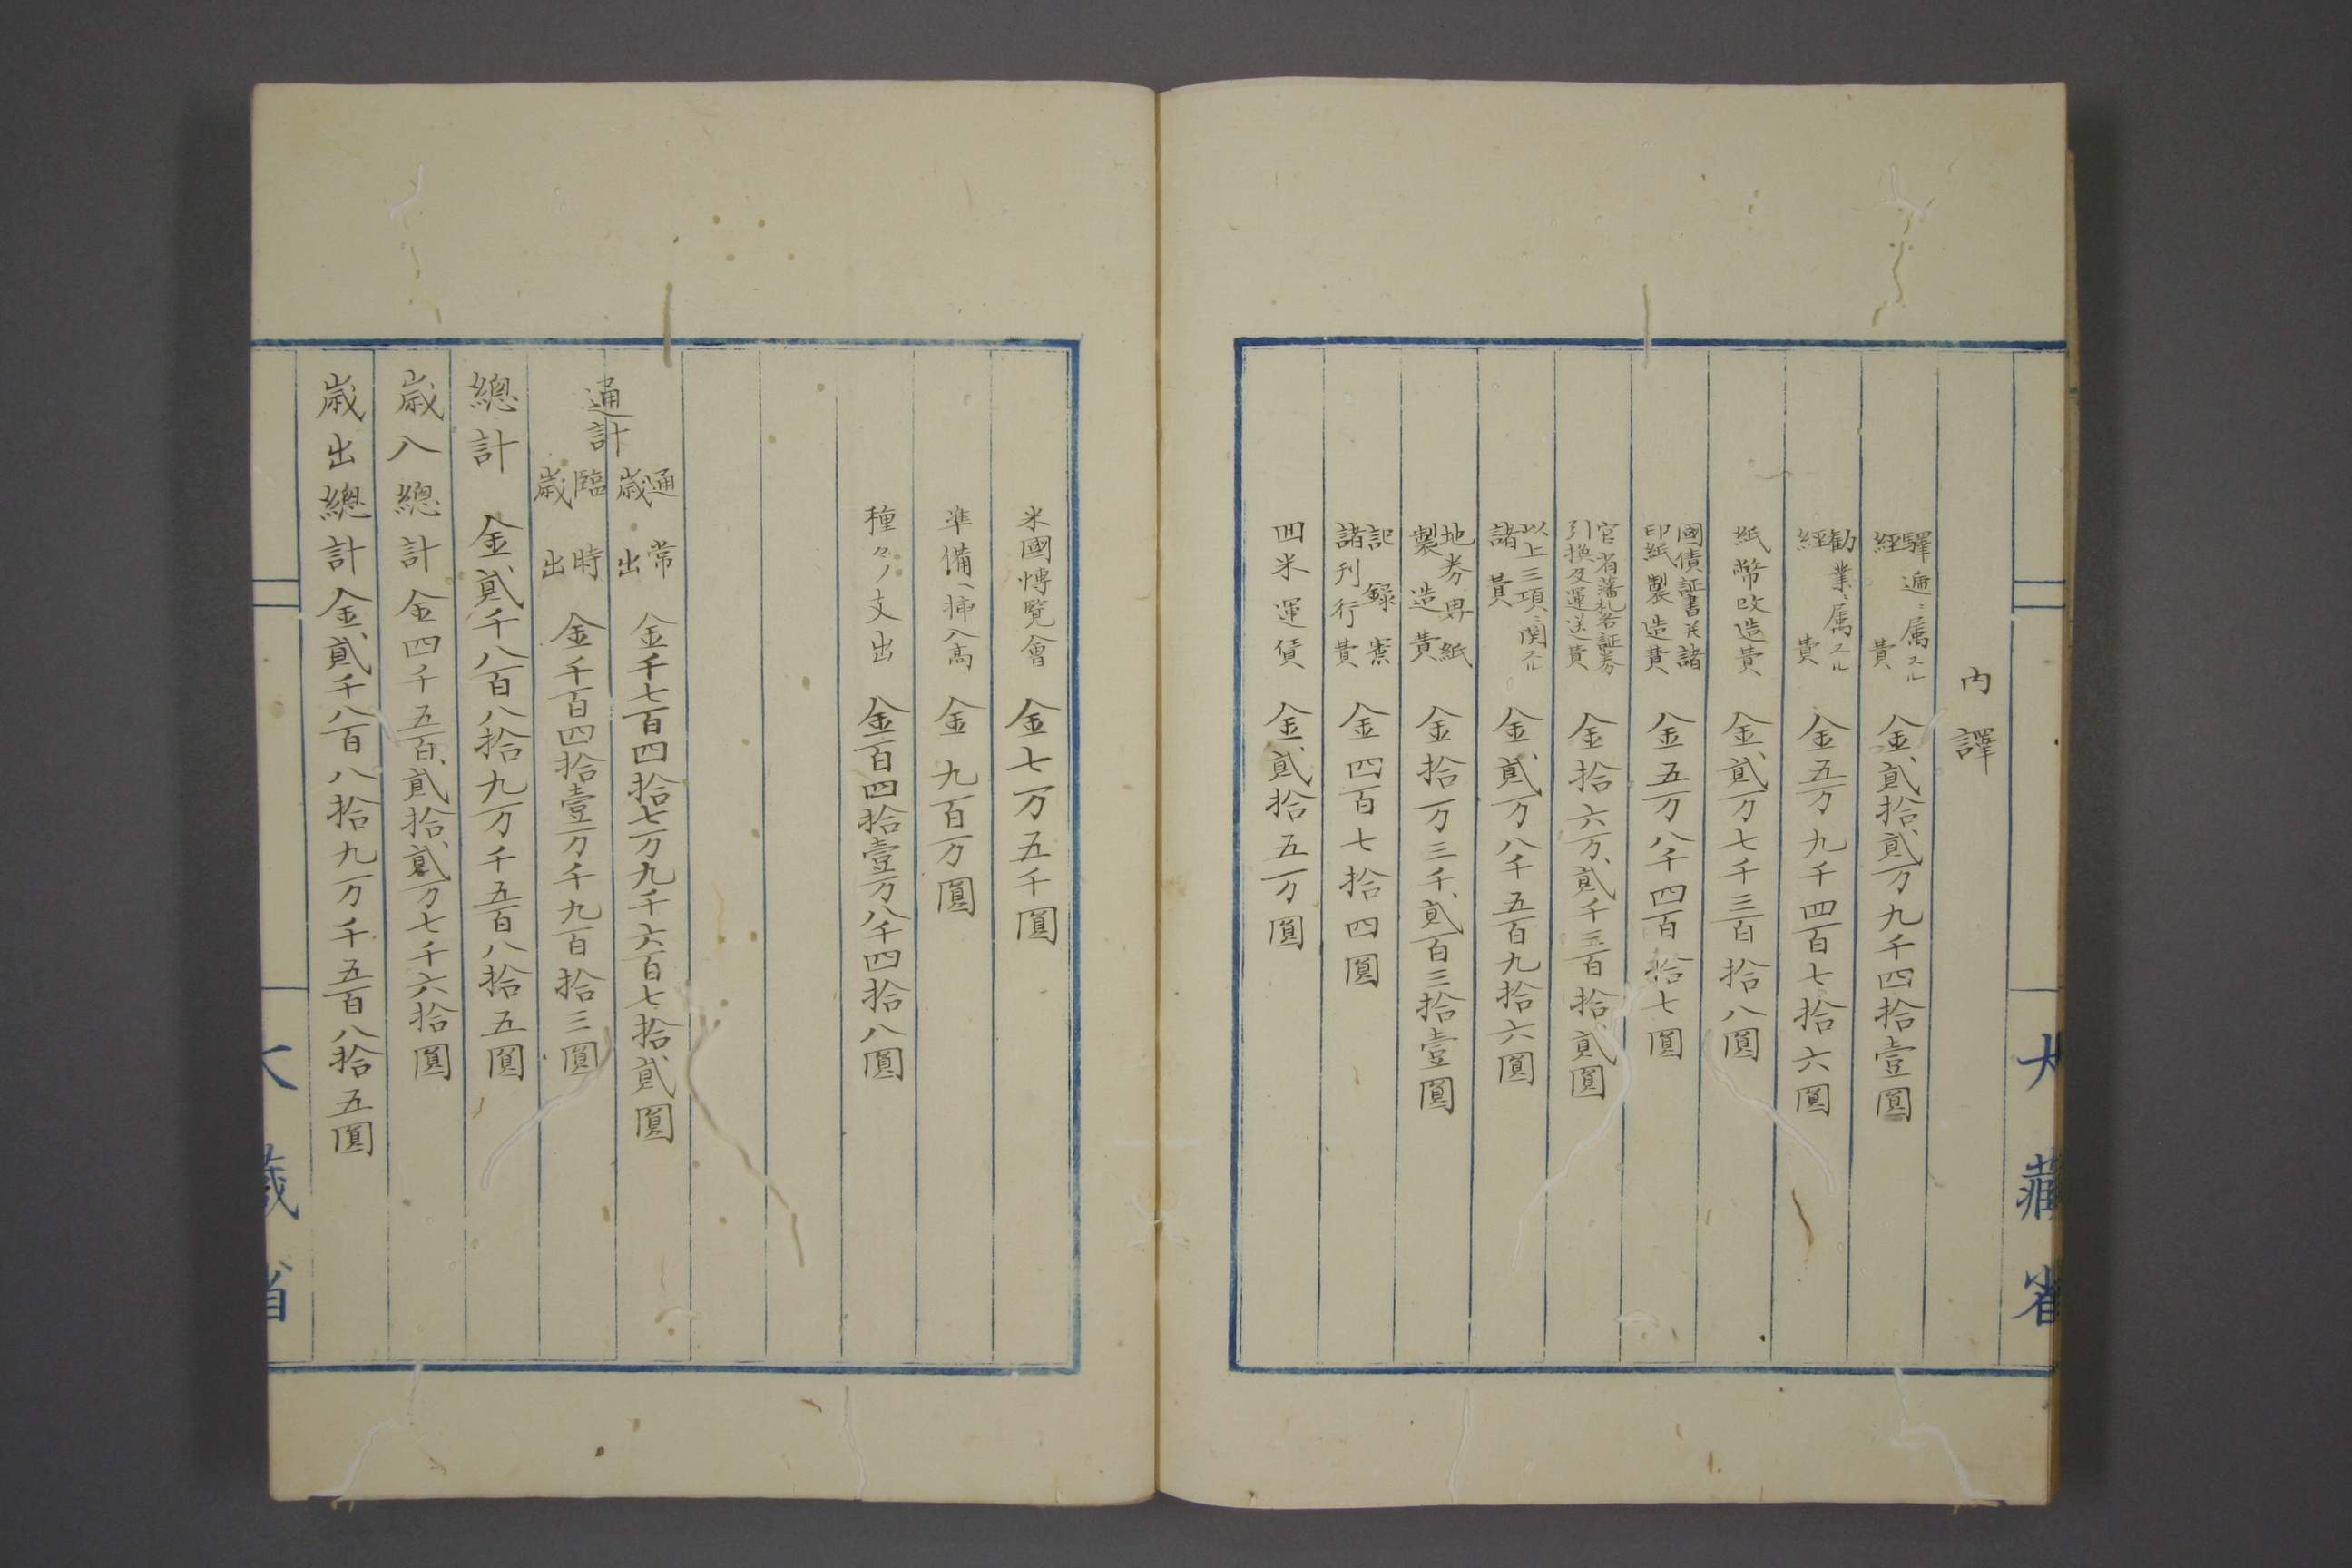 内譯
驛逓ニ属スル
経費 金貳拾貳万九千四拾壹圓
勧業ニ属スル
経費 金五万九千四百七拾六圓
紙幣改造費 金貳万七千三百拾八圓
國債証書并諸
印紙製造費 金五万八千四百拾七圓
官省藩札若証券
引換及運送費 金拾六万貳千三百拾貳圓
以上三項ニ関スル
諸費 金貳万八千五百九拾六圓
地券界紙
製造費 金拾一万三千貳百三拾壹圓
記録案
諸刊行費 金四百七拾四圓
囬米運賃 金貳拾五万圓
大藏省
米國愽覧會 金七万五千圓
準備ヘ挿入高 金九百万圓
種々ノ支出 金百四拾壹万八千四拾八圓
通計
通常
歳出 金千七百四拾七万九千六百七拾貳圓
臨時
歳出 金千百四拾壹万千九百拾三圓
總計 金貳千八百八拾九万千五百八拾五圓
歳入總計 金四千五百貳拾貳万七千六拾圓
歳出總計 金貳千八百八拾九万千五百八拾五圓
大藏省